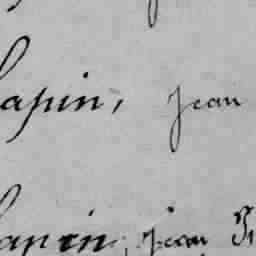 apin, Jean
apin, jean